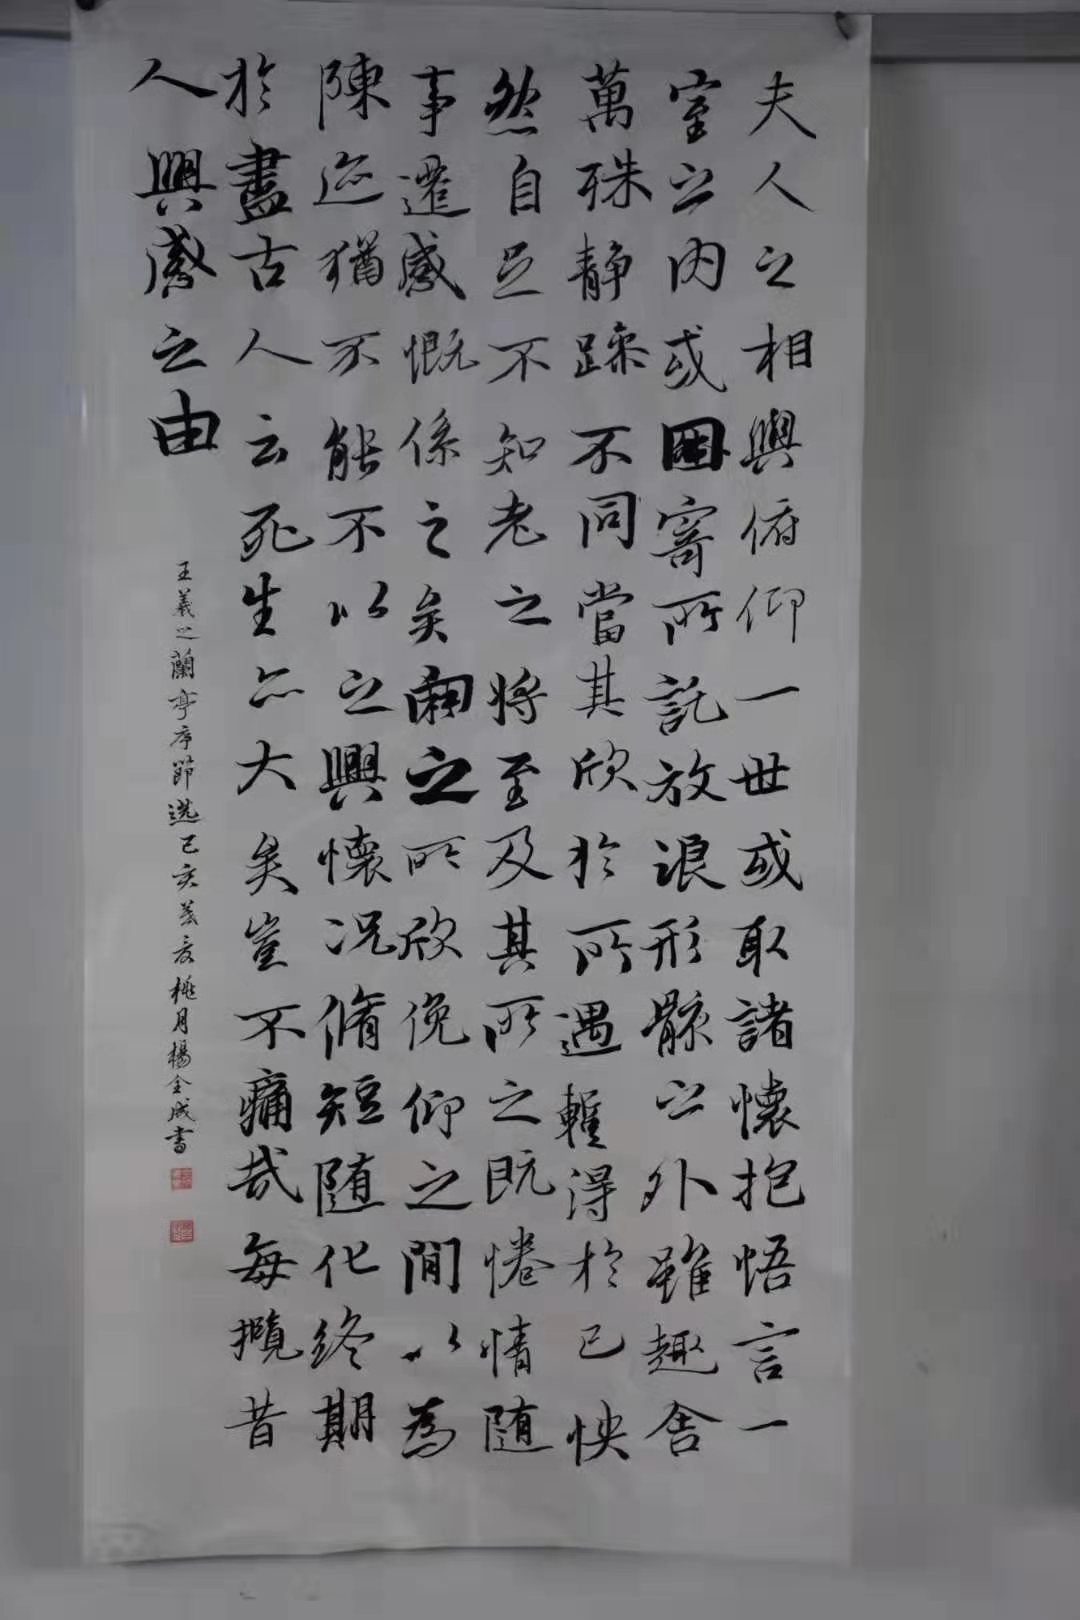 夫人之相與俯仰一世或取諸懷抱悟言一
室之内或因寄所託放浪形骸之外雖趣舍
萬殊静躁不同當其欣於所遇輒得於己怏
然自足不知老之將至及其所之既惓情随
事遷感慨係之矣向之所欣俛仰之間以為
陳迹猶不能不以之興懷況脩短随化終期
於盡古人云死生亦大矣豈不痛哉每攬昔
人興感之由
王羲之蘭亭序節选己亥桃月楊全成書